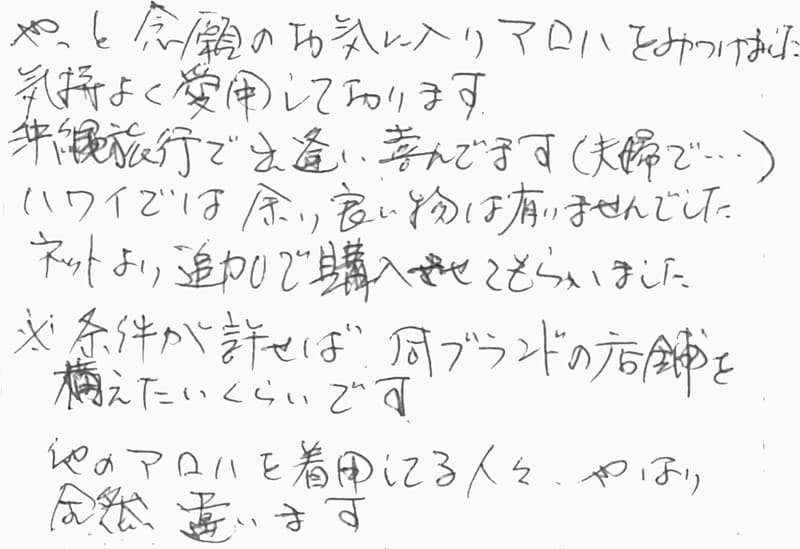 やっと念願のお気に入りアロハをみつけました
気持よく愛用しております
沖縄旅行で出逢い喜んでます(夫婦で…)
ハワイでは余り良い物は有りませんでした
ネットより追加で購入させてもらいました
※条件が許せば同ブランドの店舗を
構えたいくらいです
他のアロハを着用してる人々、やはり
全然違います